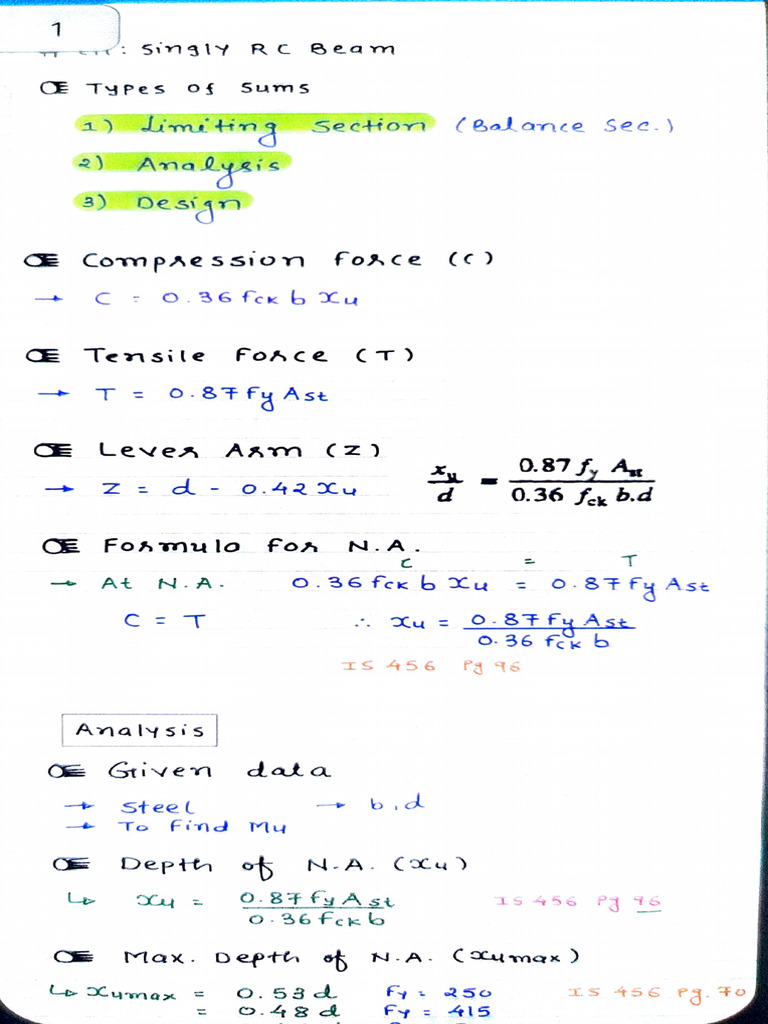 1
: Singly RC Beam
Types of Sums
1) Limiting Section (Balance Sec.)
2) Analysis
3) Design
Compression Force (C)
→ C = 0.36 fck b xu
Tensile Force (T)
→ T = 0.87 fy Ast
Lever Arm (Z)
→ Z = d - 0.42 xu
xu/d = 0.87 fy Ast / 0.36 fck b.d
Formulo for N.A.
C = T
→ At N.A. 0.36 fck b xu = 0.87 fy Ast
C = T ∴ xu = 0.87 fy Ast / 0.36 fck b
IS 456 Pg 96
Analysis
Given data
→ Steel → b, d
→ To Find Mu
Depth of N.A. (xu)
↳ xu = 0.87 fy Ast / 0.36 fck b IS 456 Pg 96
Max. Depth of N.A. (xumax)
↳ xumax = 0.53 d Fy = 250 IS 456 Pg. 70
= 0.48 d Fy = 415